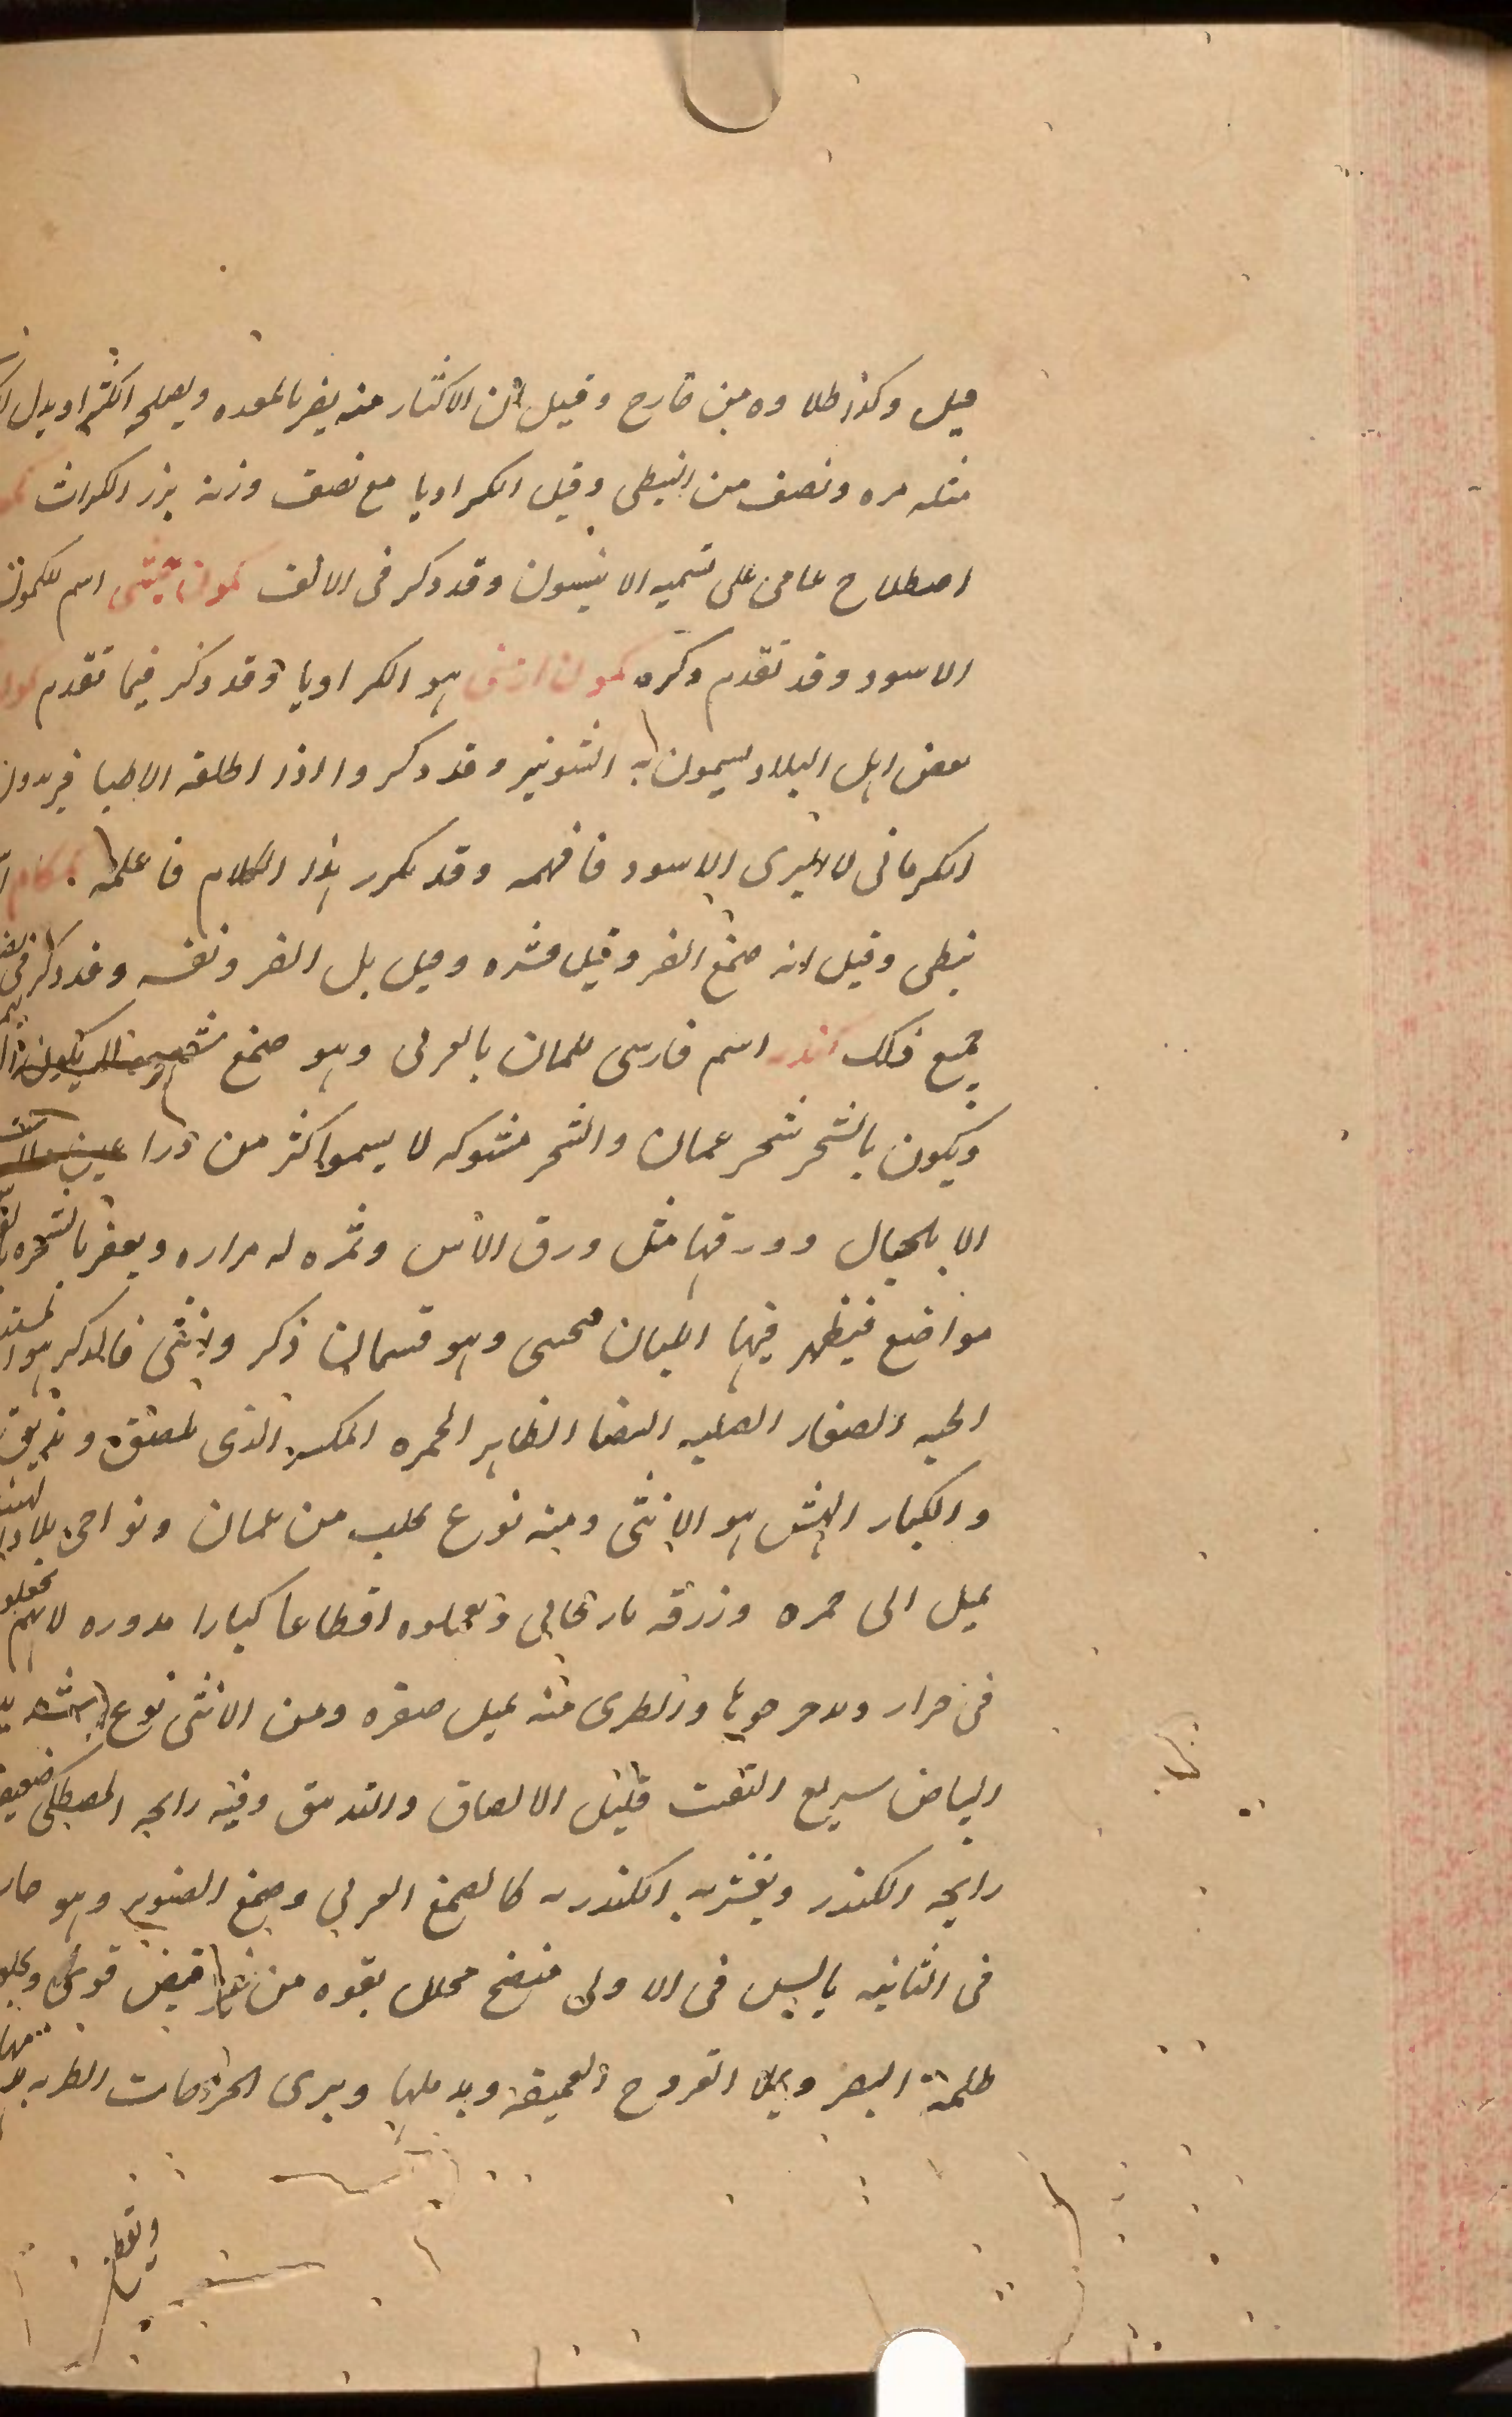 قيل وكذا طلاوه من خارج وقيل ان الاكثار منه يضر بالمعده ويصلحه الكثيرا وبدل
مثله مره ونصف من النبطى وقيل الكراويا مع نصف وزنه بزر الكراث
اصطلاح عامى على تسميه الانيسون وقد ذكر فى الالف كمون حبشى اسم للكمون
الاسود وقد تقدم ذكره كمون ارمنى هو الكراويا وقد ذكر فيما تقدم
بعض اهل البلاد يسمون به الشونيز وقد ذكروا اذا اطلقه الاطبا فيريدون
الكرمانى لا البرى الاسود فافهمه وقد تكرر هذا الكلام فاعلمه . كمكام
نبطى وقيل انه صمغ الضرو وقيل قشره وقيل بل الضرو نفسه وقد ذكر فى
جميع ذلك كندر اسم فارسى للبان بالعربى وهو صمغ
ويكون بالشحر شحر عمان والشجر مشوكه لا يسموا اكثر من ذراعين
الا بالجبال وورقها مثل ورق الاس وثمره له مراره ويعقر بالشجره
مواضع فيظهر فيها اللبان فيجنى وهو قسمان ذكر وانثى فالذكر هو
الحبه الصغار الصلبه البيضا الظاهر الحمره المكسر الذى
والكبار الهش هو الانثى ومنه نوع يجلب من عمان ونواحى بلاد الهند
يميل الى حمره وزرقه بارنجانى ويعملوه اقطاعا كبارا مدوره لانهم يجعلوه
فى جرار ويدحرجوها والطرى منه يميل صفره ومن الانثى نوع
البياض سريع التفتت قليل الالصاق والتدبق وفيه رايحه المصطكى ضعيف
رايحه الكندر ويغش به الكندر كالصمغ العربى وصمغ الصنوبر وهو حار
فى الثانيه يابس فى الاولى منضج محلل بقوه من غير قبض قوى ويجلو
ظلمة البصر ويملا القروح العميقه ويدملها ويبرى الجراحات الطريه